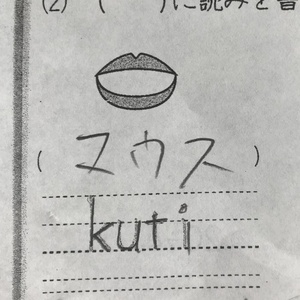 (2) ( )に読みを書
( マウス )
kuti